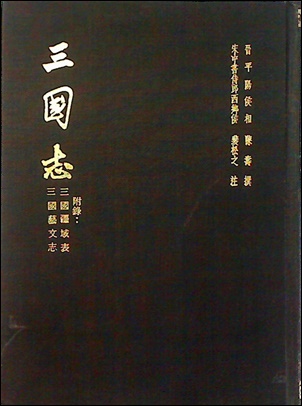 晉平陽侯相陳壽撰
宋中書侍郎西鄉侯裴松之注
三國志
附錄：
三國疆域表
三國藝文志